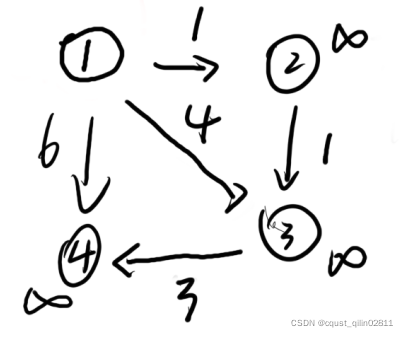 1
① ② ∞
4
6 1
④ ③
∞ 3 ∞
CSDN @cquat_qilin02811